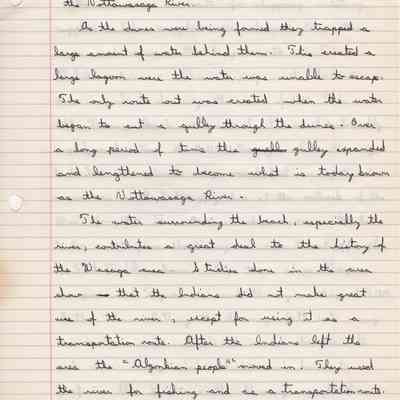 the Nottawasaga River.
As the dunes were being formed they trapped a
large amount of water behind them. This created a
large lagoon were the water was unable to escape.
The only route out was created when the water
began to cut a gulley through the dunes. Over,
a long period of time this gulley expanded
and lengthened to become what is today known
as the Nottawasaga River.
The water surrounding the beach, especially the
river, contributes a great deal to the history of
the Wasaga area. Studies done in the area
show that the Indians did not make great
use of the river, except for using it as a
transportation route. After the Indians left the
area the "Algonkian people" moved in. They used
the river for fishing and as a transportation route.